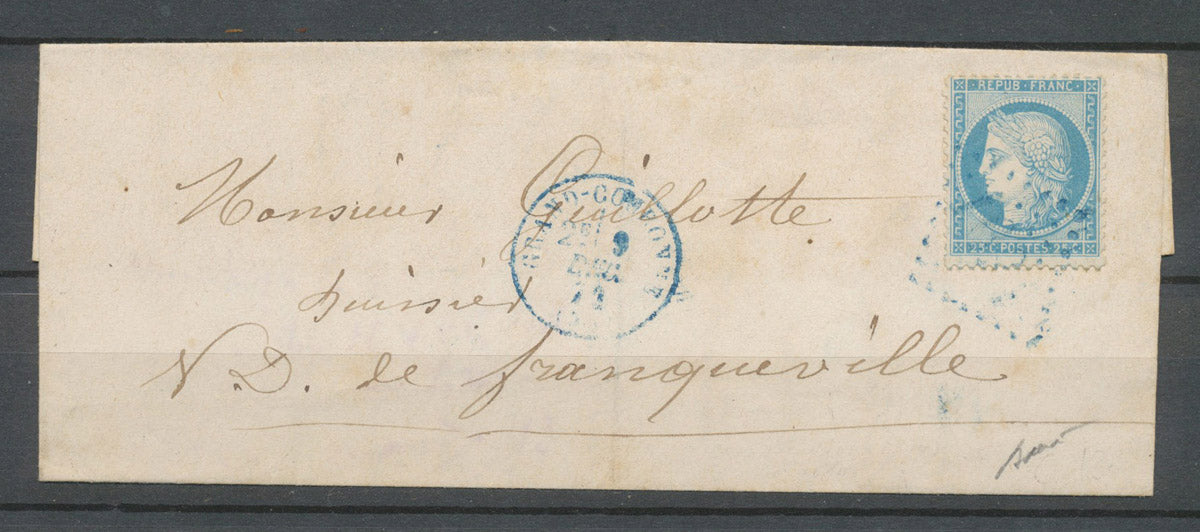 REPUB·FRANC·
25·C·POSTES·25·C·
Monsieur Quillotte
huissier
N. D. de franqueville
GRAND-COURONNE
9
DEC.